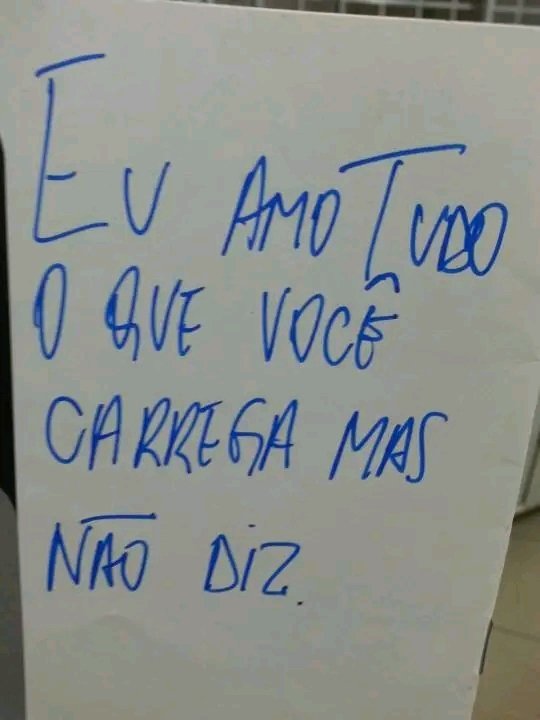 EU AMO TUDO
O QUE VOCÊ
CARREGA MAS
NÃO DIZ.